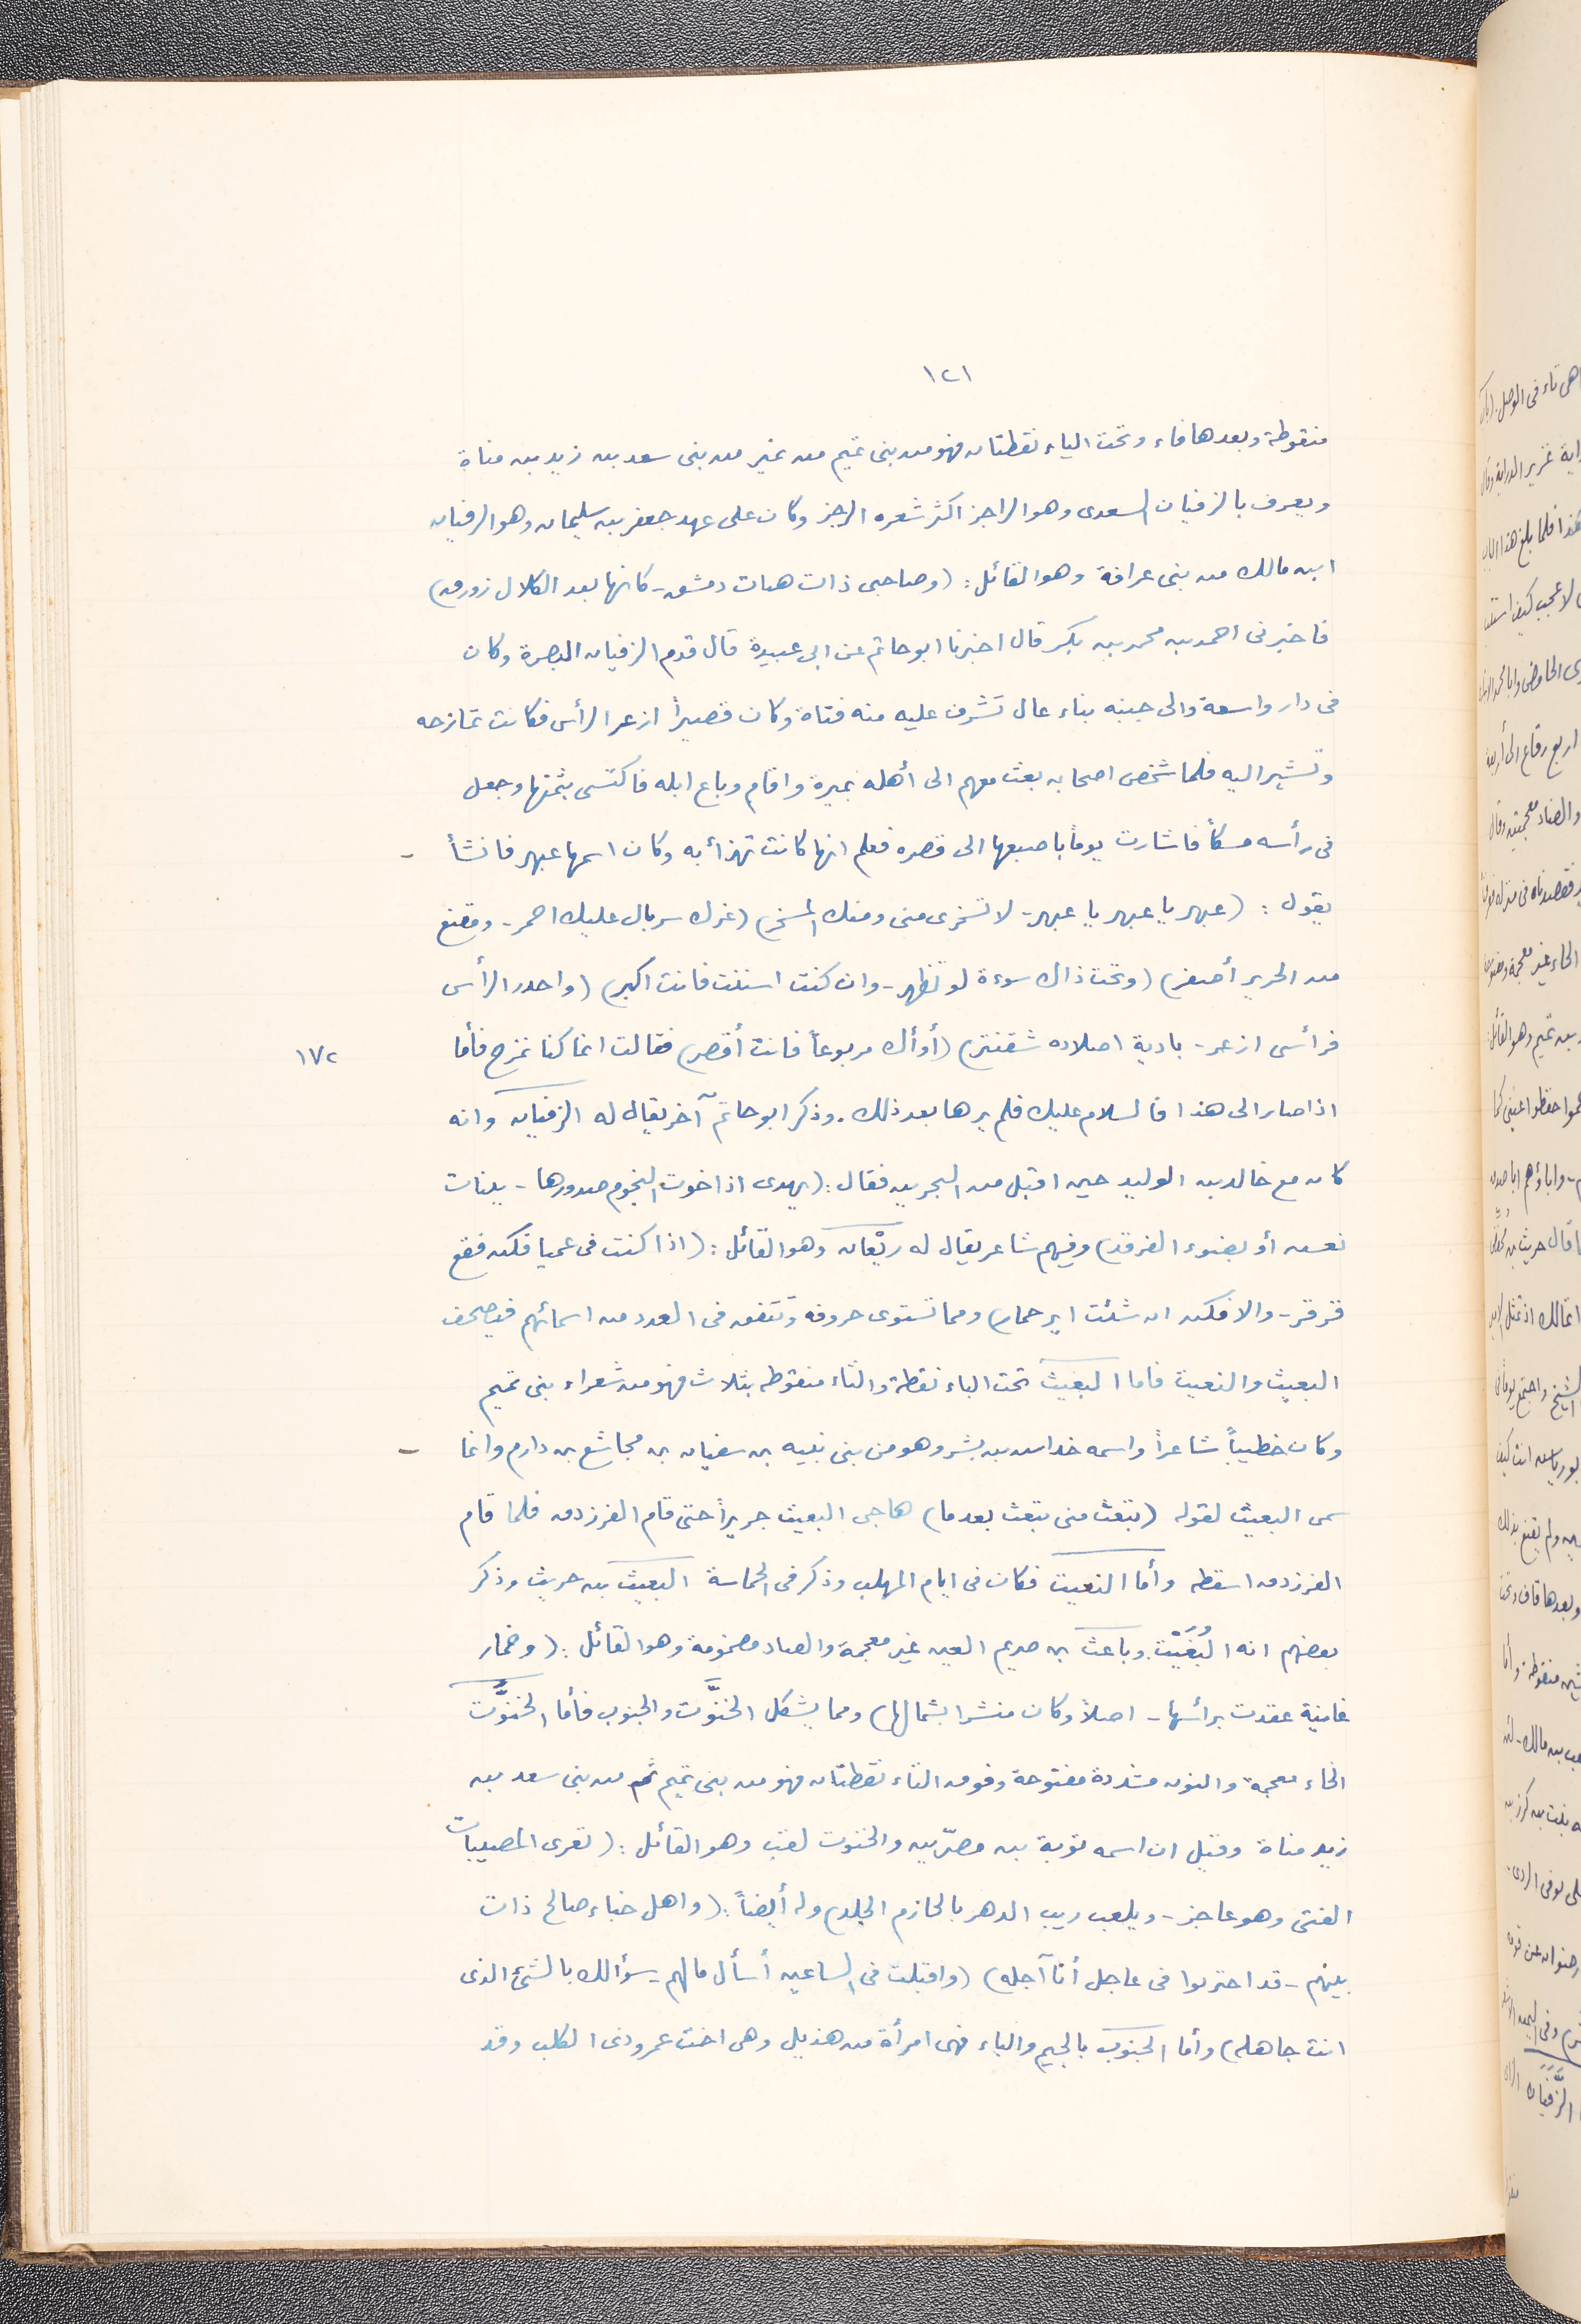 ١٢١
منقوطة وبعدها فاء وتحت الياء نقطتان فهو من بنى تميم من غير من بنى سعد بن زيد بن مناة
ويعرف بالزفيان السعدى وهو الراجز اكثر شعره الرجز وكان على عهد جعفر بن سليمان وهو الزفيان
ابن مالك من بنى عرافة وهو القائل : (وصاحبى ذات هبات دمشق - كانها بعد الكلال زورق)
فاخبرنى احمد بن محمد بن بكر قال اخبرنا ابو حاتم عن ابى عبيدة قال قدم الزفيان البصرة وكان
فى دار واسعة والى جنبه بناء عال تشرف عليه منه فتاة وكان قصيراً ازعر الرأس فكانت تمازحه
وتشير اليه فلما شخص اصحابه بعث معهم الى أهله بميرة واقام وباع ابله فاكتسى بثمنها وجعل
فى رأسه مسكاً فاشارت يوماً باصبعها الى قصره فعلم انها كانت تهزأ به وكان اسمها عبهر فانشأ
يقول : (عبهر يا عبهر يا عبهر - لا تسخرى منى ومنك المسخر) (غرك سربال عليك احمر - ومقنع
من الحرير أصفر) (وتحت ذاك سوءة لو تظهر - وان كنت اسننت فانت اكبر) (واحدر الرأس
فرأسى ازعر - بادية اصلاده شقنتر) (أو أك مربوعاً فانت أقصر) فقالت انما كنا نمزح فأما ١٧٢
اذا صار الى هذا فالسلام عليك فلم يرها بعد ذلك . وذكر ابو حاتم آخر يقال له الزفيان وانه
كان مع خالد بن الوليد حين اقبل من البحرين فقال : (يهدى اذا خوت النجوم صدورها - ببنات
نعش أو بضوء الفرقد) وفيهم شاعر يقال له ريْعان وهو القائل : (اذا كنت فى عميا فكن فقع
قرقر - والا فكن ان شئت اير حمار) ومما تستوى حروفه وتتفق فى العدد من اسمائهم فيصحف
البعيث والنعيت فاما البعيث تحت الباء نقطة والثاء منقوطه بثلاث فهو من شعراء بنى تميم
وكان خطيباً شاعراً واسمه خداش بن بشر وهو من بنى نبيه بن سفيان بن مجاشع بن دارم وانما
سمى البعيث لقوله (تبعث منى تبعث بعد ما) هاجى البعيث جريراً حتى قام الفرزدق فلما قام
الفرزدق اسقطه وأما النعيت فكان فى ايام المهلب وذكر فى الحماسة البعيث بن حريث وذكر
بعضهم انه البُغَيْت وباعث بن صريم العين غير معجمة والصاد مضمومة وهو القائل : (وخمار
غانية عقدت برأسها - اصلاً وكان منشرا بشمالها) ومما يشكل الخنَّوت والجنوب فأما الخنَّوت
الخاء معجمة والنون مشددة مفتوحة وفوق التاء نقطتان فهو من بنى تميم ثم من بنى سعد بن
زيد مناة وقيل ان اسمه توبة بن مضرّس والخنوت لقب وهو القائل : (تعرى المصيبات
الفتى وهو عاجز - ويلعب ريب الدهر بالحازم الجلد) وله أيضاً : (واهل خباء صالح ذات
بينهم - قد احتربوا فى عاجل أنا آجله) (واقبلت فى الساعين أسأل مالهم - سؤالك بالشئ الذى
انت جاهله) وأما الجنوب بالجيم والباء فهى امرأة من هذيل وهى اخت عمرو ذى الكلب وقد